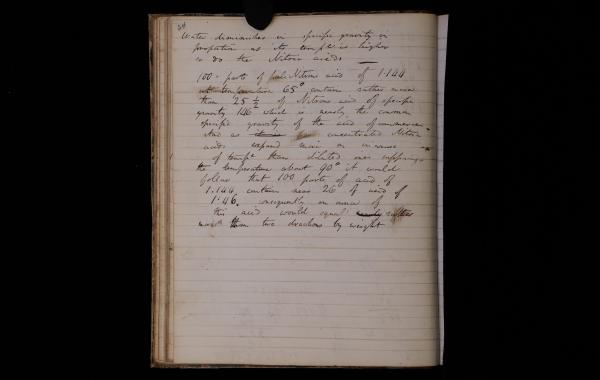 54
Water diminishes in specific gravity in
proportion as its temp.re is higher
so do the Nitrous acids
100 parts of Nitrous acid of 1.144
at temperature 65° contain rather more
than 25 1/2 of Nitrous acid of specific
gravity 1.46 which is nearly the common
specific gravity of the acid of commerce
And as concentrated Nitrous
acids expand more on increase
of temp.re than diluted ones supposing
the temperature about 90° it would
follow that 100 parts of acid of
1.144 contain near 26 of acid of
1.46. consequently an ounce of
this acid would equal rather
more than two drachms by weight